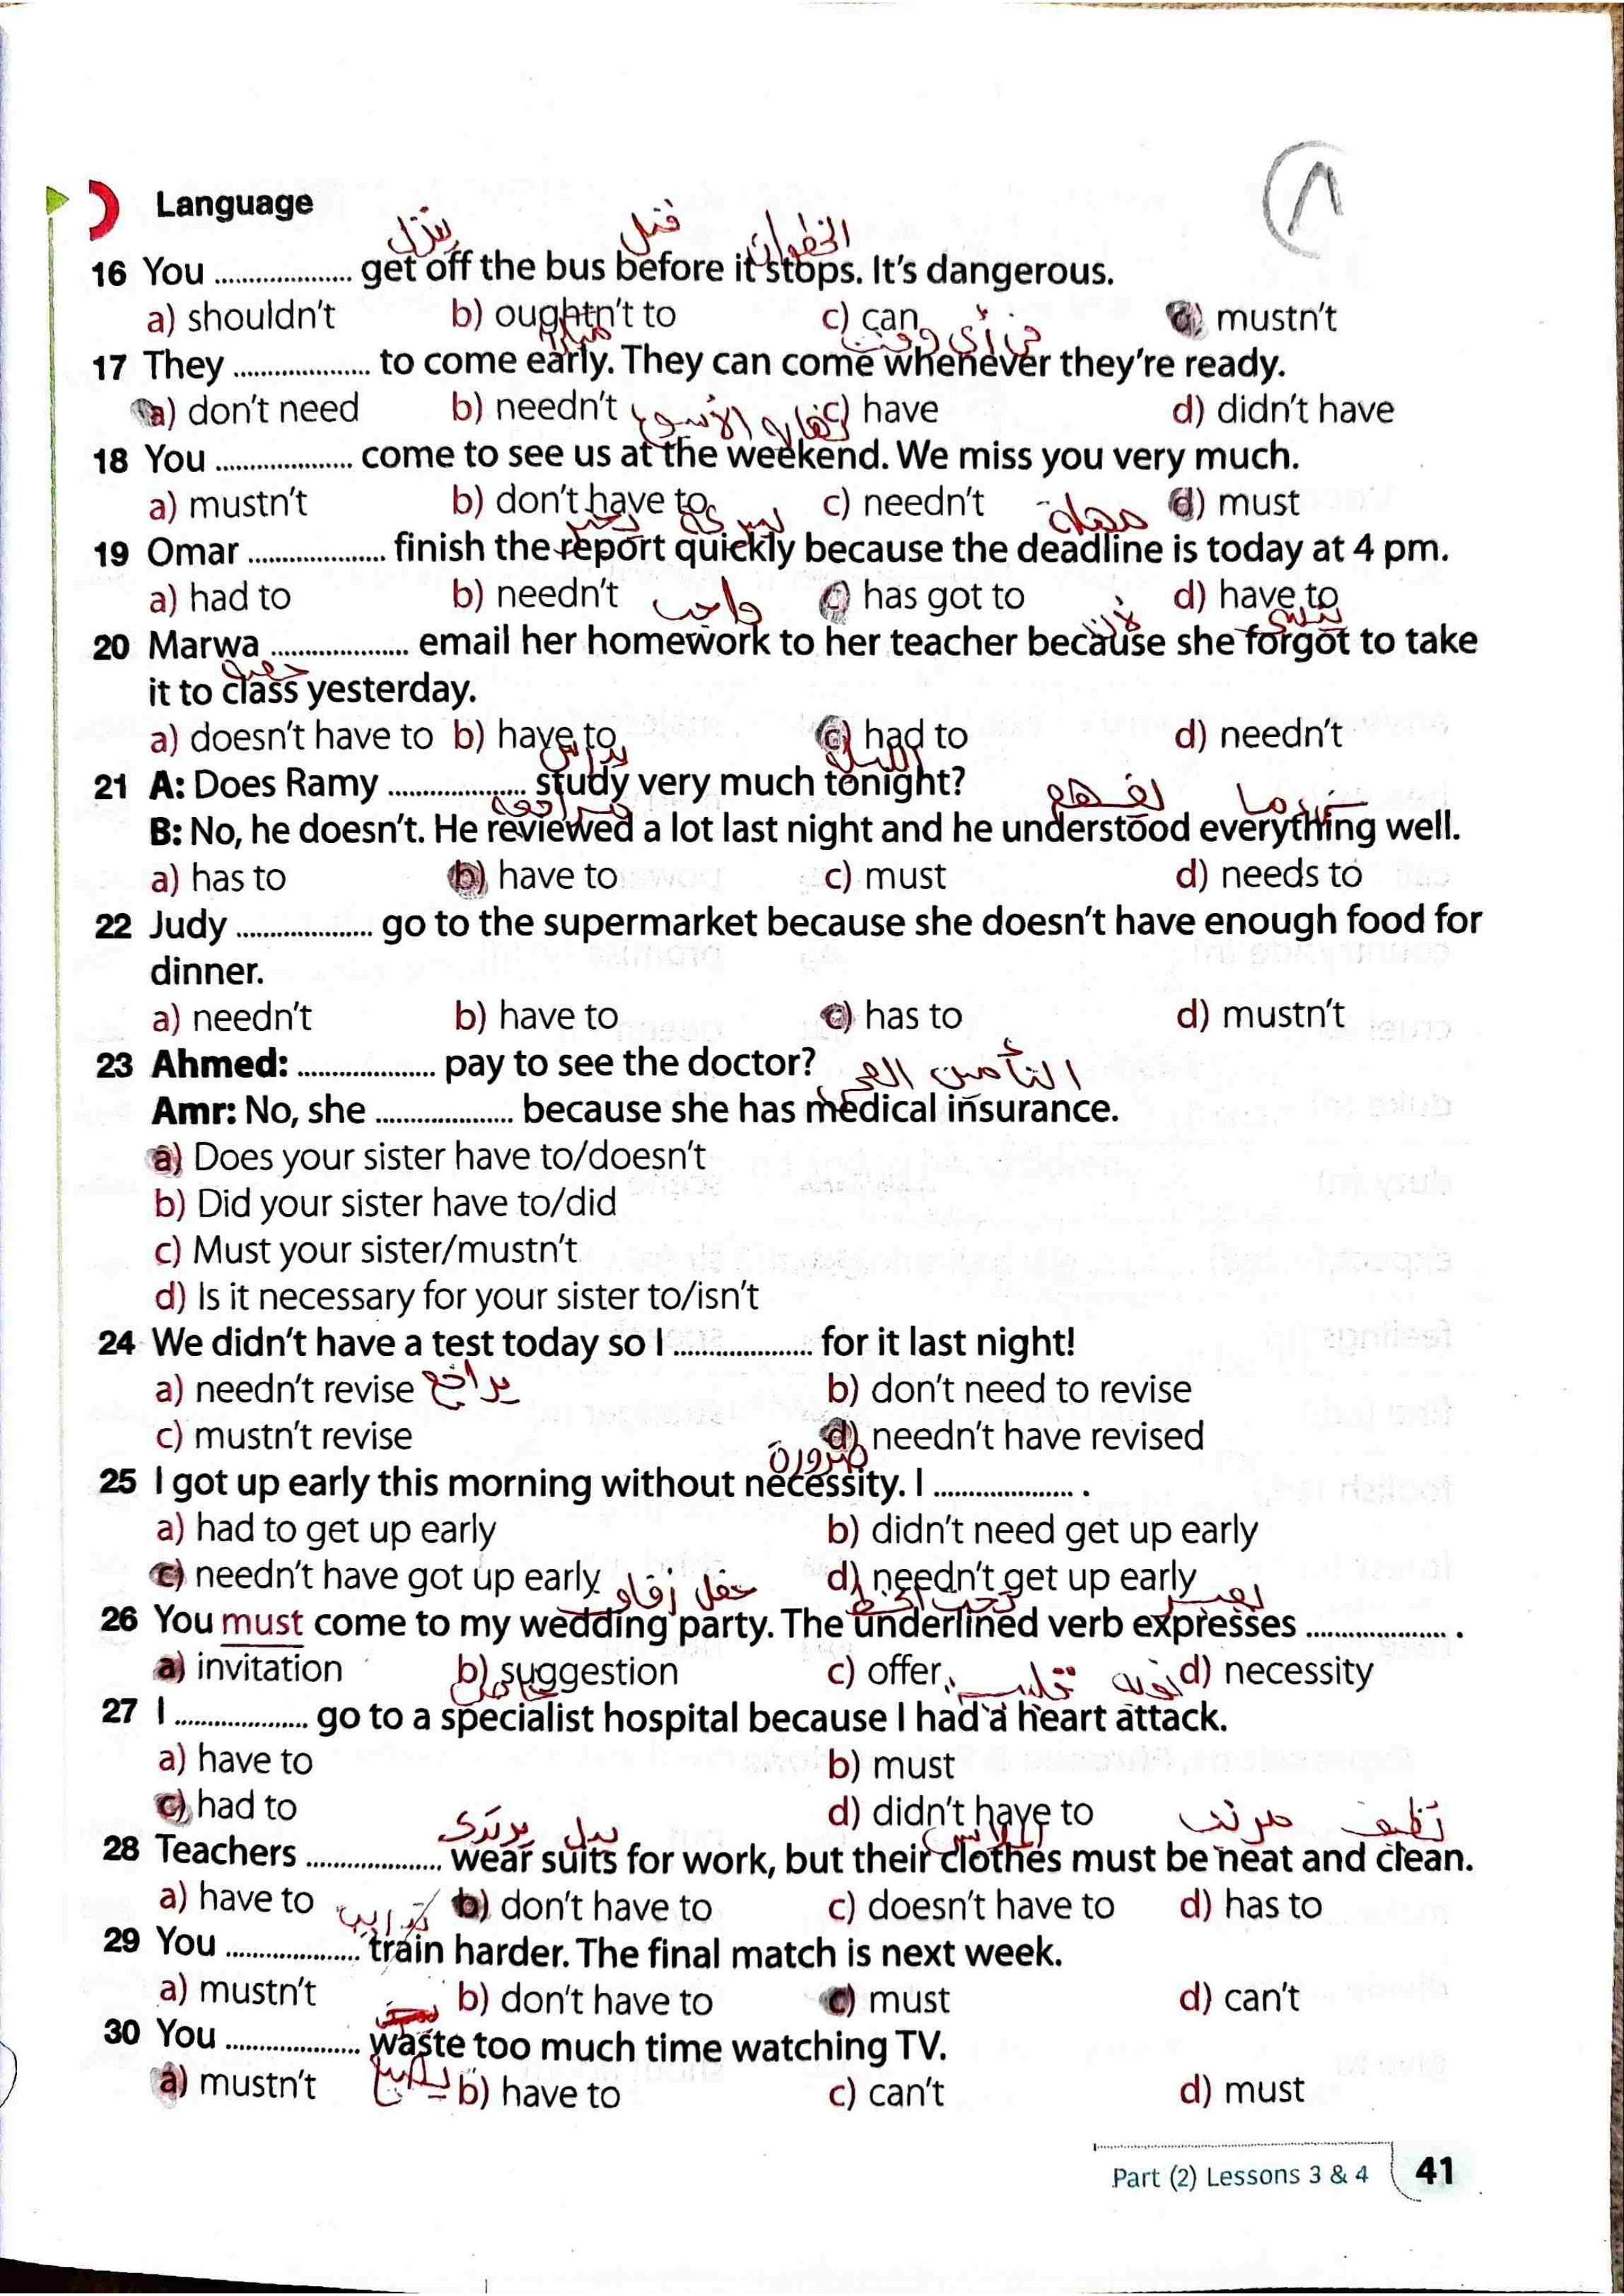 Language
٨
ينزل قبل
16 You .................. get off the bus before it stops. It's dangerous.
a) shouldn't b) oughtn't to c) can d) mustn't
في أي وقت
17 They .................. to come early. They can come whenever they're ready.
a) don't need b) needn't c) have d) didn't have
18 You .................. come to see us at the weekend. We miss you very much.
a) mustn't b) don't have to c) needn't d) must
مهلة
19 Omar .................. finish the report quickly because the deadline is today at 4 pm.
a) had to b) needn't c) has got to d) have to
واجب
20 Marwa .................. email her homework to her teacher because she forgot to take
حصة
it to class yesterday.
a) doesn't have to b) have to c) had to d) needn't
21 A: Does Ramy .................. study very much tonight?
B: No, he doesn't. He reviewed a lot last night and he understood everything well.
a) has to b) have to c) must d) needs to
22 Judy .................. go to the supermarket because she doesn't have enough food for
dinner.
a) needn't b) have to c) has to d) mustn't
23 Ahmed: .................. pay to see the doctor?
Amr: No, she .................. because she has medical insurance.
a) Does your sister have to/doesn't
b) Did your sister have to/did
c) Must your sister/mustn't
d) Is it necessary for your sister to/isn't
24 We didn't have a test today so I .................. for it last night!
a) needn't revise يراجع b) don't need to revise
c) mustn't revise d) needn't have revised
ضرورة
25 I got up early this morning without necessity. I .................. .
a) had to get up early b) didn't need get up early
c) needn't have got up early d) needn't get up early
حفل زفاف
26 You must come to my wedding party. The underlined verb expresses .................. .
a) invitation b) suggestion c) offer d) necessity
27 I .................. go to a specialist hospital because I had a heart attack.
a) have to b) must
c) had to d) didn't have to
يرتدي بدل الملابس مرتب نظيف
28 Teachers .................. wear suits for work, but their clothes must be neat and clean.
a) have to b) don't have to c) doesn't have to d) has to
29 You .................. train harder. The final match is next week.
a) mustn't b) don't have to c) must d) can't
30 You .................. waste too much time watching TV.
a) mustn't b) have to c) can't d) must
Part (2) Lessons 3 & 4 41